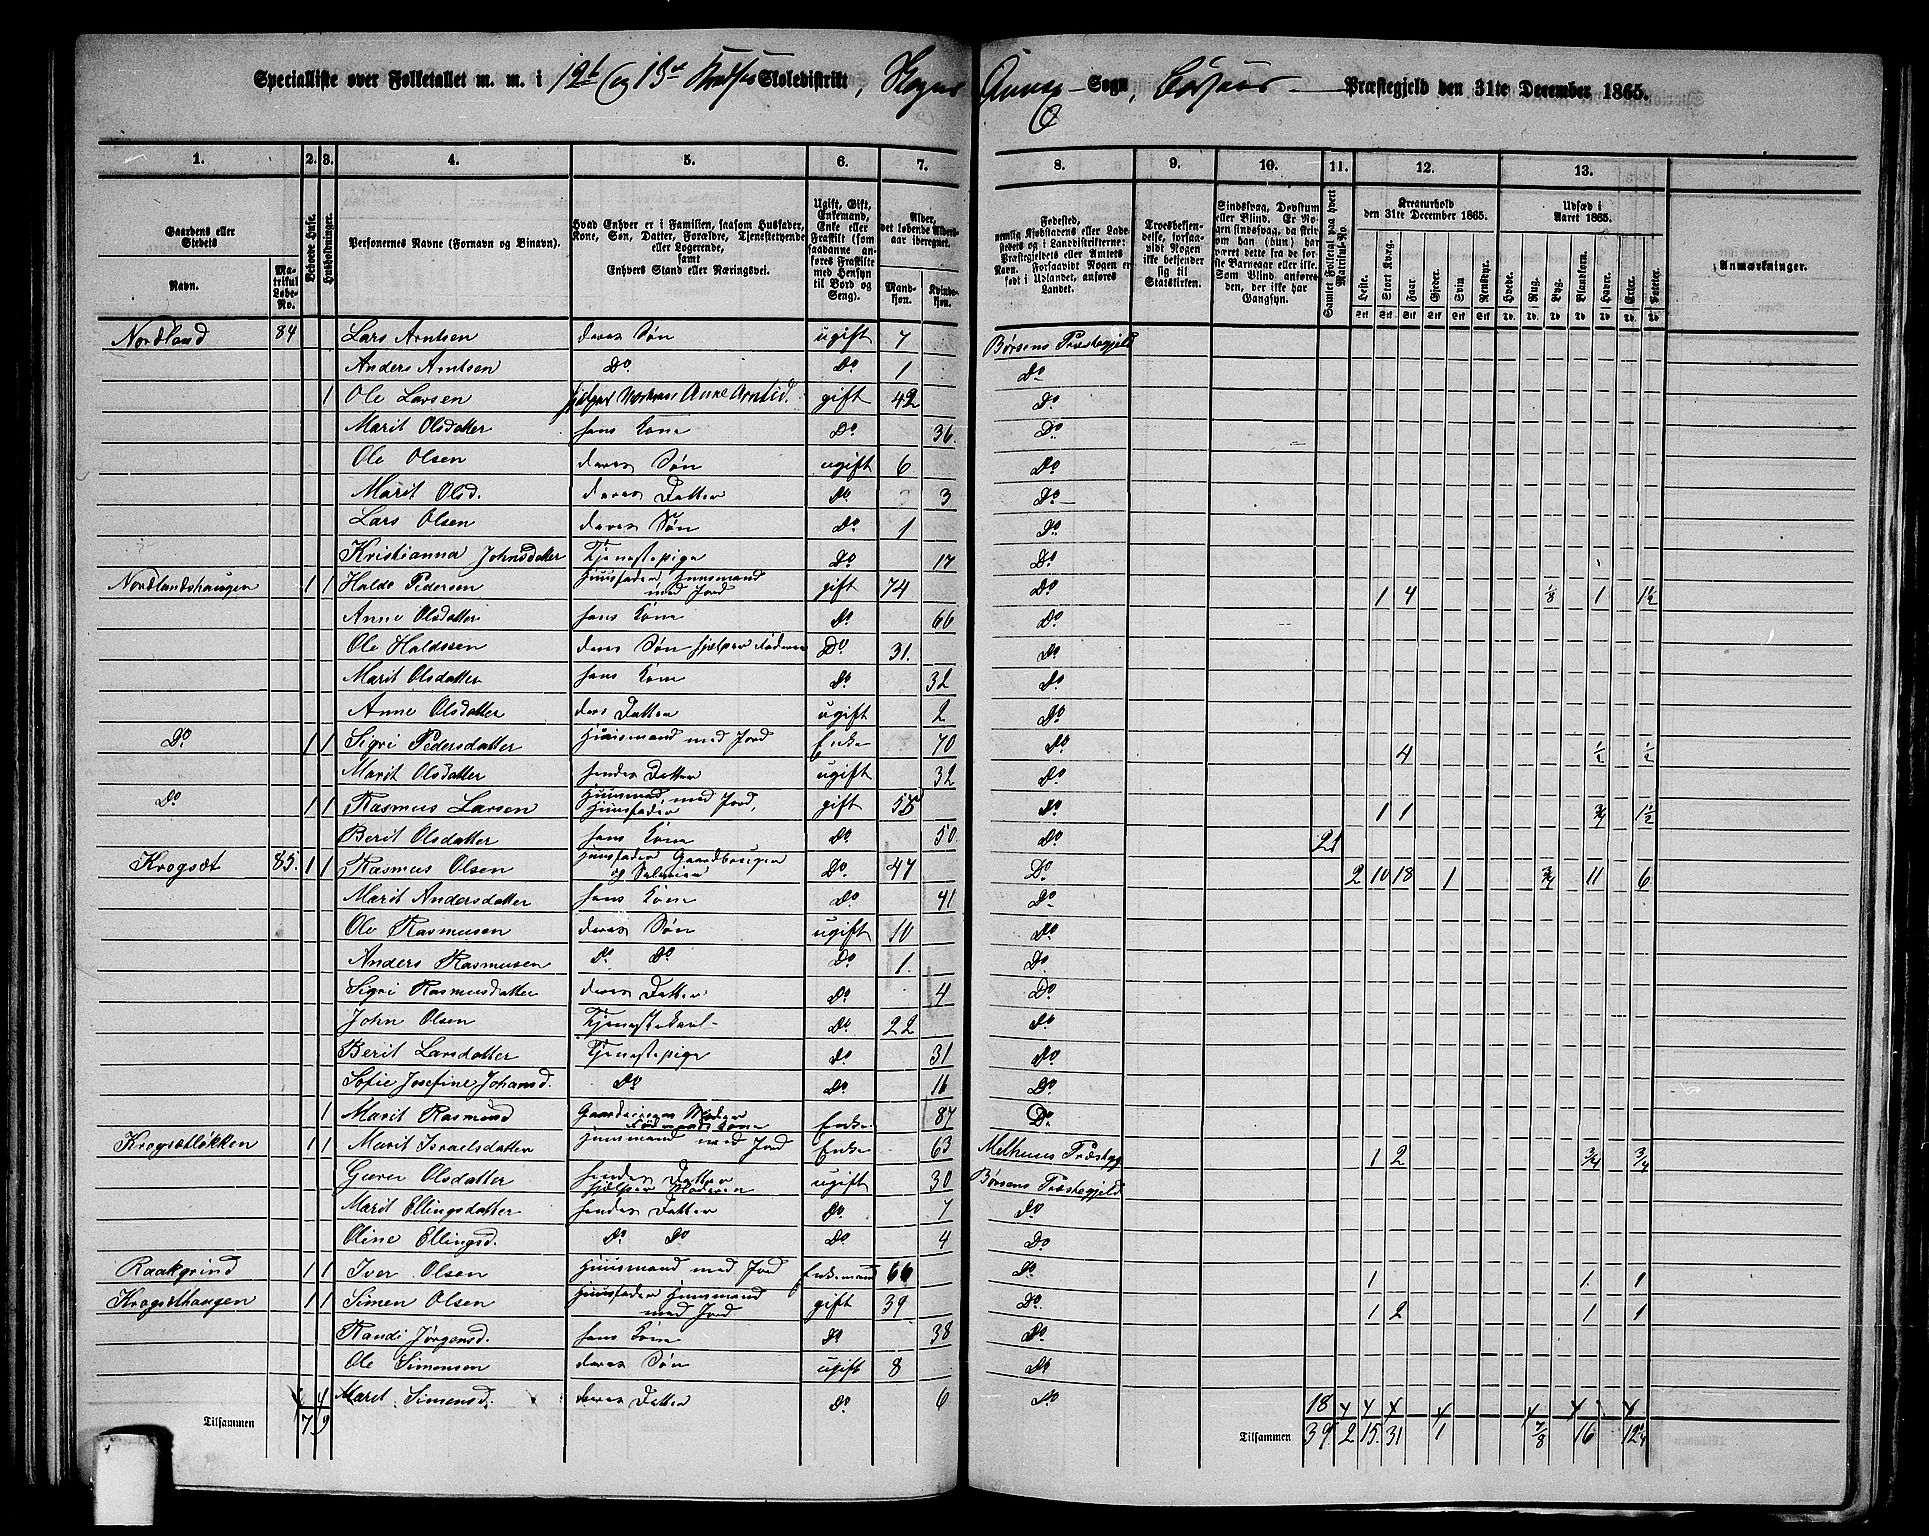 Specialliste over Folketallet m. m. i 12te og 13de Skoledistrikt, Annex Sogn, Børsens Præstegjeld den 31te December 1865.
1. 2. 3. 4. 5. 6. 7. 8. 9. 10. 11. 12. 13.
Gaardens eller Stedets Navn. Matrikul Løbe-No. Beboede Huse. Husholdninger. Personernes Navne (Fornavn og Binavn). Hvad Enhver er i Familien, saasom Husfader, Kone, Søn, Datter, Forældre, Tjenestetyende eller Logerende, samt Enhvers Stand eller Næringsvei. Ugift, Gift, Enkemand, Enke eller Fraskilt (som saadanne anføres Fraskilte med Hensyn til Bord og Seng). Alder, det løbende Aldersaar iberegnet. Mandkjøn. Kvindekjøn.
Fødested, nemlig Kjøbstadens eller Ladestedets og i Landdistrikterne: Præstegjeldets eller Amtets Navn. Forsaavidt Nogen er født i Udlandet, anføres Landet. Troesbekjendelse, forsaavidt Nogen ikke bekjender sig til Statskirken. Sindssvag, Døvstum eller Blind. Er Nogen sindssvag, da skrives om han (hun) har været dette fra de første Barneaar eller ikke. Som Blind anføres den, der ikke har Gangsyn. Samlet Folketal paa hvert Matrikul-No. Kreaturhold den 31te December 1865. Udsæd i Aaret 1865. Anmærkninger.
Heste. Stort Kvæg. Faar. Gjeder. Sviin. Rensdyr. Hvede. Rug. Byg. Blandkorn. Havre. Erter. Poteter.
Nordland 84 Lars Arntsen deres Søn ugift 7 Børsens Præstegjeld
Anders Arntsen Do Do 1 Do
1 Ole Larsen hjelper Værtinden Anne Arntsd. gift 42 Do
Marit Olsdatter hans Kone Do 36 Do
Ole Olsen deres Søn ugift 6 Do
Marit Olsd. deres Datter Do 3 Do
Lars Olsen deres Søn Do 1 Do
Kristianna Johnsdatter Tjenestepige Do 17 Do
Nordlandshaugen 1 1 Haldo Pedersen Huusfader Huusmand med Jord gift 74 Do 1 4 1/8 1 1½
Anne Olsdatter hans Kone Do 66 Do
Ole Haldosen deres Søn hjelper Faderen Do 31. Do
Marit Olsdatter hans Kone Do 32 Do
Anne Olsdatter deres Datter ugift 2 Do
Do 1 1 Sigri Pedersdatter Huusmand med Jord Enke 70 Do 4 ½ ½
Marit Olsdatter hendes Datter ugift 32 Do
Do 1 1 Rasmus Larsen Huusmand med Jord, Huusfader gift 55 Do 1 1 ¾ 1½
Berit Olsdatter hans Kone Do 50. Do 21
Krogsæt 85. 1 1 Rasmus Olsen Huusfader Gaardbruger og Selveier Do 47 Do 2 10 18 1 ¾ 11 6
Marit Andersdatter hans Kone Do 41 Do
Ole Rasmusen deres Søn ugift 10 Do
Anders Rasmusen Do Do Do 1. Do
Sigri Rasmusdatter deres Datter Do 4 Do
John Olsen Tjenestekarl Do 22 Do
Berit Larsdatter Tjenestepige Do 31 Do
Sofie Josefine Johansd. Do Do 16 Do
1 Marit Rasmusd Gaardeierens Moder Føderaadskone Enke 87 Do
Krogsætløkken 1 1 Marit Israelsdatter Huusmand med Jord Enke 63 Melhuus Præstegj 1 2 ¾ ¾
Guru Olsdatter hendes Datter hjelper Moderen ugift 30 Børsens Præstegjeld
Marit Ellingsdatter hendes Datter Do 7 Do
Oline Ellingsd. Do Do Do 4 Do
Raakgrind 1 1 Iver Olsen Huusmand med Jord Enkemand 66 Do 1 1 1
Krogsethaugen 1 1 Simen Olsen Huusfader Huusmand med Jord gift 39 Do 1 2 1 1
Randi Jørgensd. hans Kone Do 38 Do
Ole Simensen deres Søn ugift 8 Do
Marit Simensd. deres Datter Do 6 Do 18
Tilsammen 7 9 Tilsammen 39 2 15. 31 1 7/8 16 12¼